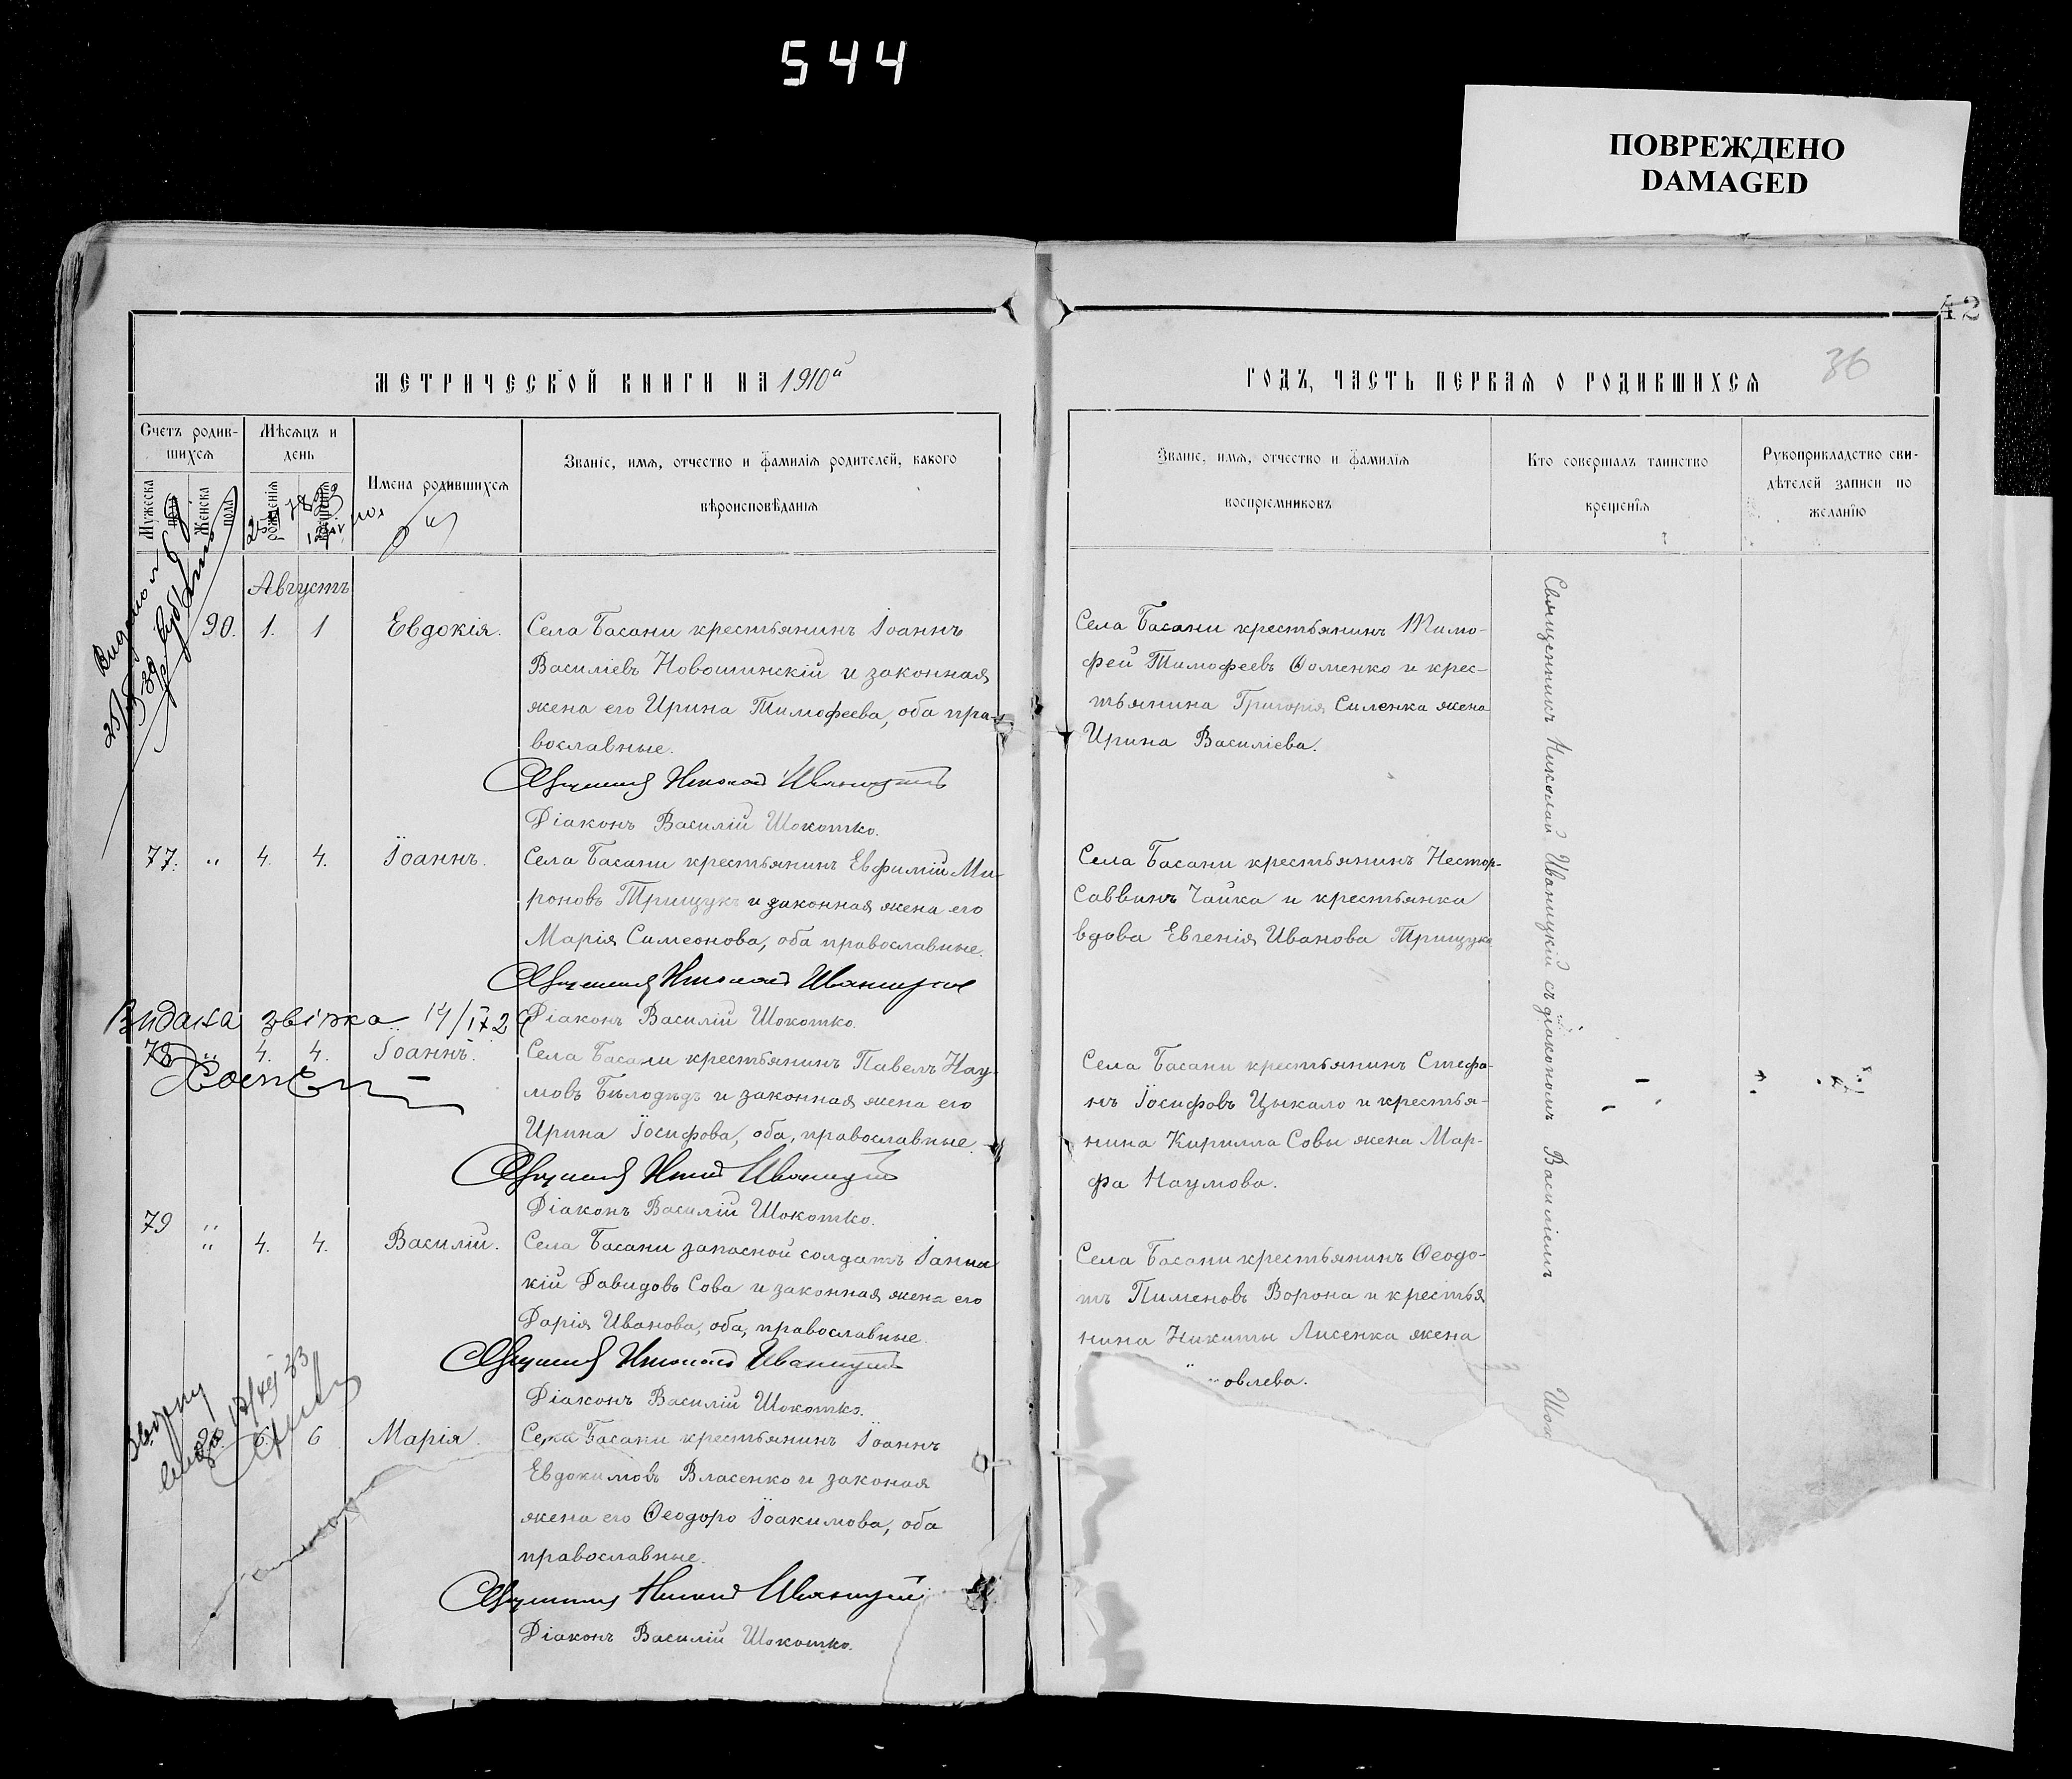 544
ПОВРЕЖДЕНО
DAMAGED
42
36
МЕТРИЧЕСКОЙ КНИГИ НА 1910й
Счетъ родив-
шихся
Мужеска
пола
Женска
пола
Мѣсяцъ и
день
рожденія
крещенія
Имена родившихся
Званіе, имя, отчество и фамилія родителей, какого
вѣроисповѣданія
Августъ
90. 1. 1 Евдокія.
Села Басани крестьянинъ Іоаннъ
Василіевъ Новошинскій и законная
жена его Ирина Тимофеева, оба пра-
вославные.
Священникъ Николай Иваницкій
Діаконъ Василій Шокотко.
77. " 4. 4. Іоаннъ.
Села Басани крестьянинъ Евфимій Ми-
роновъ Трищукъ и законная жена его
Марія Симеонова, оба православные.
Священникъ Николай Иваницкій
Діаконъ Василій Шокотко.
Видана 14/IX 29
78 " 4. 4. Іоаннъ.
Села Басани крестьянинъ Павелъ Нау-
мовъ Бѣлодѣдъ и законная жена его
Ирина Іосифова, оба, православные.
Священникъ Николай Иваницкій
Діаконъ Василій Шокотко.
79 " 4. 4. Василій.
Села Басани запасной солдатъ Іанна-
кій Давидовъ Сова и законная жена его
Дарія Иванова, оба, православные.
Священникъ Николай Иваницкій
Діаконъ Василій Шокотко.
6. 6 Марія.
Села Басани крестьянинъ Іоаннъ
Евдокимовъ Власенко и законая
жена его Ѳеодоро Іоакимова, оба
православные.
Священникъ Николай Иваницкій
Діаконъ Василій Шокотко.
ГОДЪ, ЧАСТЬ ПЕРВАЯ О РОДИВШИХСЯ
Званіе, имя, отчество и фамилія
воспріемниковъ
Кто совершалъ таинство
крещенія
Рукоприкладство сви-
дѣтелей записи по
желанію
Села Басани крестьянинъ Тимо-
фей Тимофеевъ Ѳоменко и крес-
тьянина Григорія Силенка жена
Ирина Василіева.
Села Басани крестьянинъ Несторъ
Саввинъ Чайка и крестьянка
вдова Евгенія Иванова Трищука
Села Басани крестьянинъ Стефа-
нъ Іосифовъ Цыкало и крестья-
нина Кирилла Совы жена Мар-
фа Наумова.
Села Басани крестьянинъ Ѳеодо-
тъ Пименовъ Ворона и крестья
нина Никиты Лисенка жена
овлева.
Священникъ Николай Иваницкій съ діакономъ Василіемъ Шок